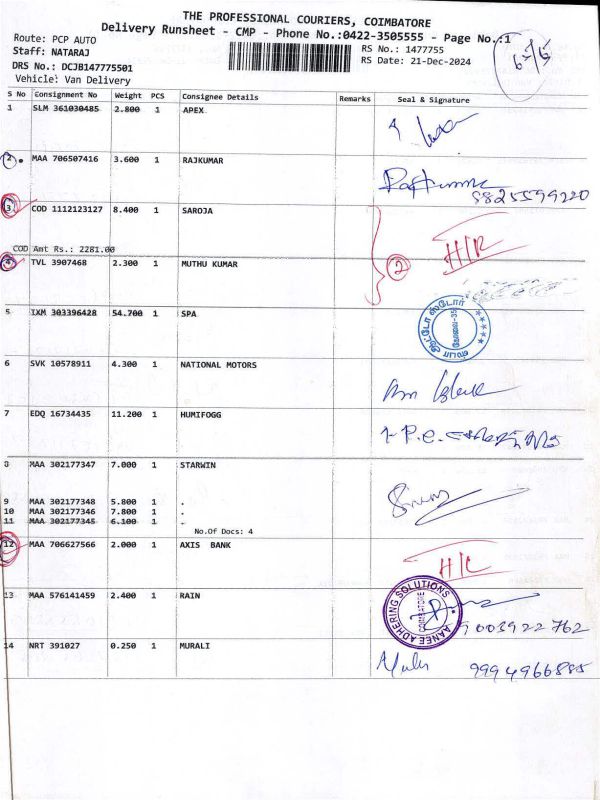 THE PROFESSIONAL COURIERS, COIMBATORE
Delivery Runsheet - CMP - Phone No.:0422-3505555 - Page No.:1
Route: PCP AUTO
RS No.: 1477755
Staff: NATARAJ
RS Date: 21-Dec-2024
DRS No.: DCJB147775501
Vehicle: Van Delivery
S No Consignment No Weight PCS Consignee Details Remarks Seal & Signature
1 SLM 361030485 2.800 1 APEX
2 MAA 706507416 3.600 1 RAJKUMAR
Rajkumar
8825599220
3 COD 1112123127 8.400 1 SAROJA
H/R
COD Amt Rs.: 2281.00
2
4 TVL 3907468 2.300 1 MUTHU KUMAR
5 IXM 303396428 54.700 1 SPA
ஸ்பா ஆட்டோ ஸ்டோர்
கோவை-35
6 SVK 10578911 4.300 1 NATIONAL MOTORS
7 EDQ 16734435 11.200 1 HUMIFOGG
8 MAA 302177347 7.000 1 STARWIN
9 MAA 302177348 5.800 1 .
10 MAA 302177346 7.800 1 .
11 MAA 302177345 6.100 1 .
No.Of Docs: 4
12 MAA 706627566 2.000 1 AXIS BANK
13 MAA 576141459 2.400 1 RAIN
AANEE ADHERING SOLUTIONS
COIMBATORE
9003922762
14 NRT 391027 0.250 1 MURALI
9994966885